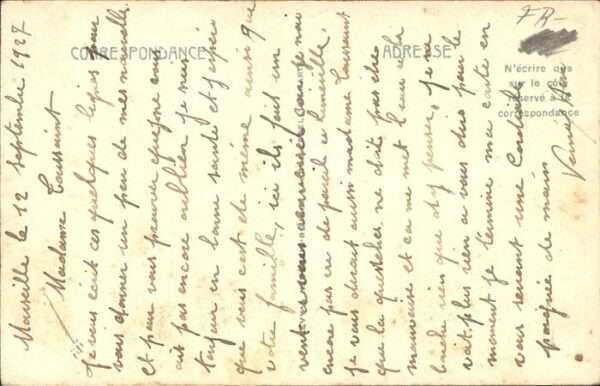 CORRESPONDANCE
ADRESSE
N'écrire que
sur le côté
réservé à la
correspondance
FR-
Marseille le 12 septembre 1927
Madame Toussaint
je vous écrit ces quelques lignes pour
vous donner un peu de mes nouvelles
et pour vous prouver que je vous
ait pas encore oublier je suis
toujour en bonne santé et j'espère
que vous c'est de même ainsi que
votre famille, ici ils fait un
vent
encore pas eu de pareil ce
je vous dirait aussi madame Toussaint
que la ne doit pas être
mauvaise et ca me met l'eau a la
bouche rien que d'y penser, je ne
vait plus rien a vous dire pour le
moment je termine ma carte en
vous serrant une Cordiale
poignée de main